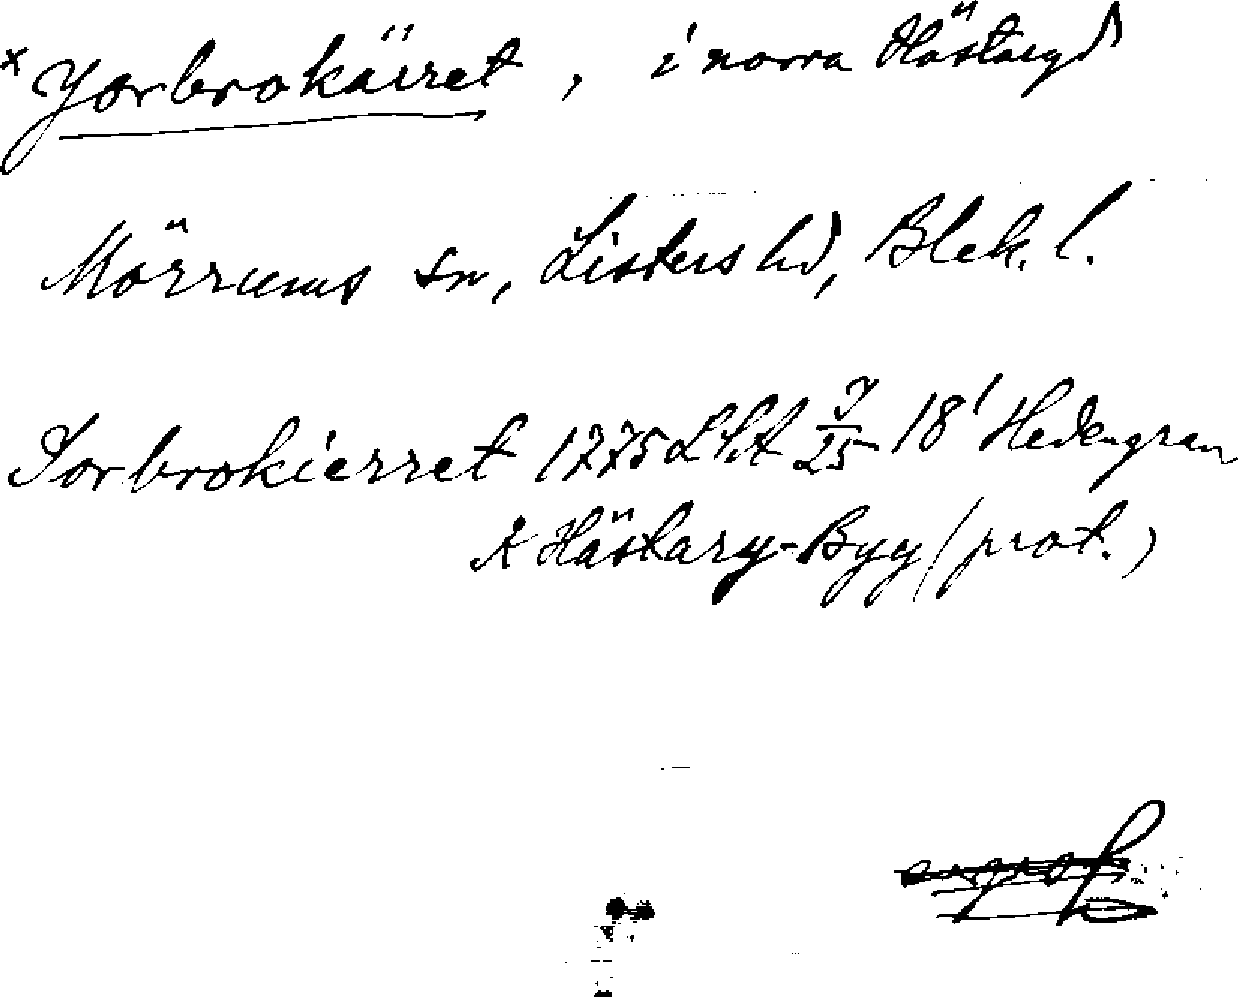 * Yorbrokärret, i norra Hästaryd
Mörrums sn, Listers hd, Blek. l.
Jorbrokierret 1775 LSA 7/25 18' Hedengran
Å Hästary-Byy (prot.)